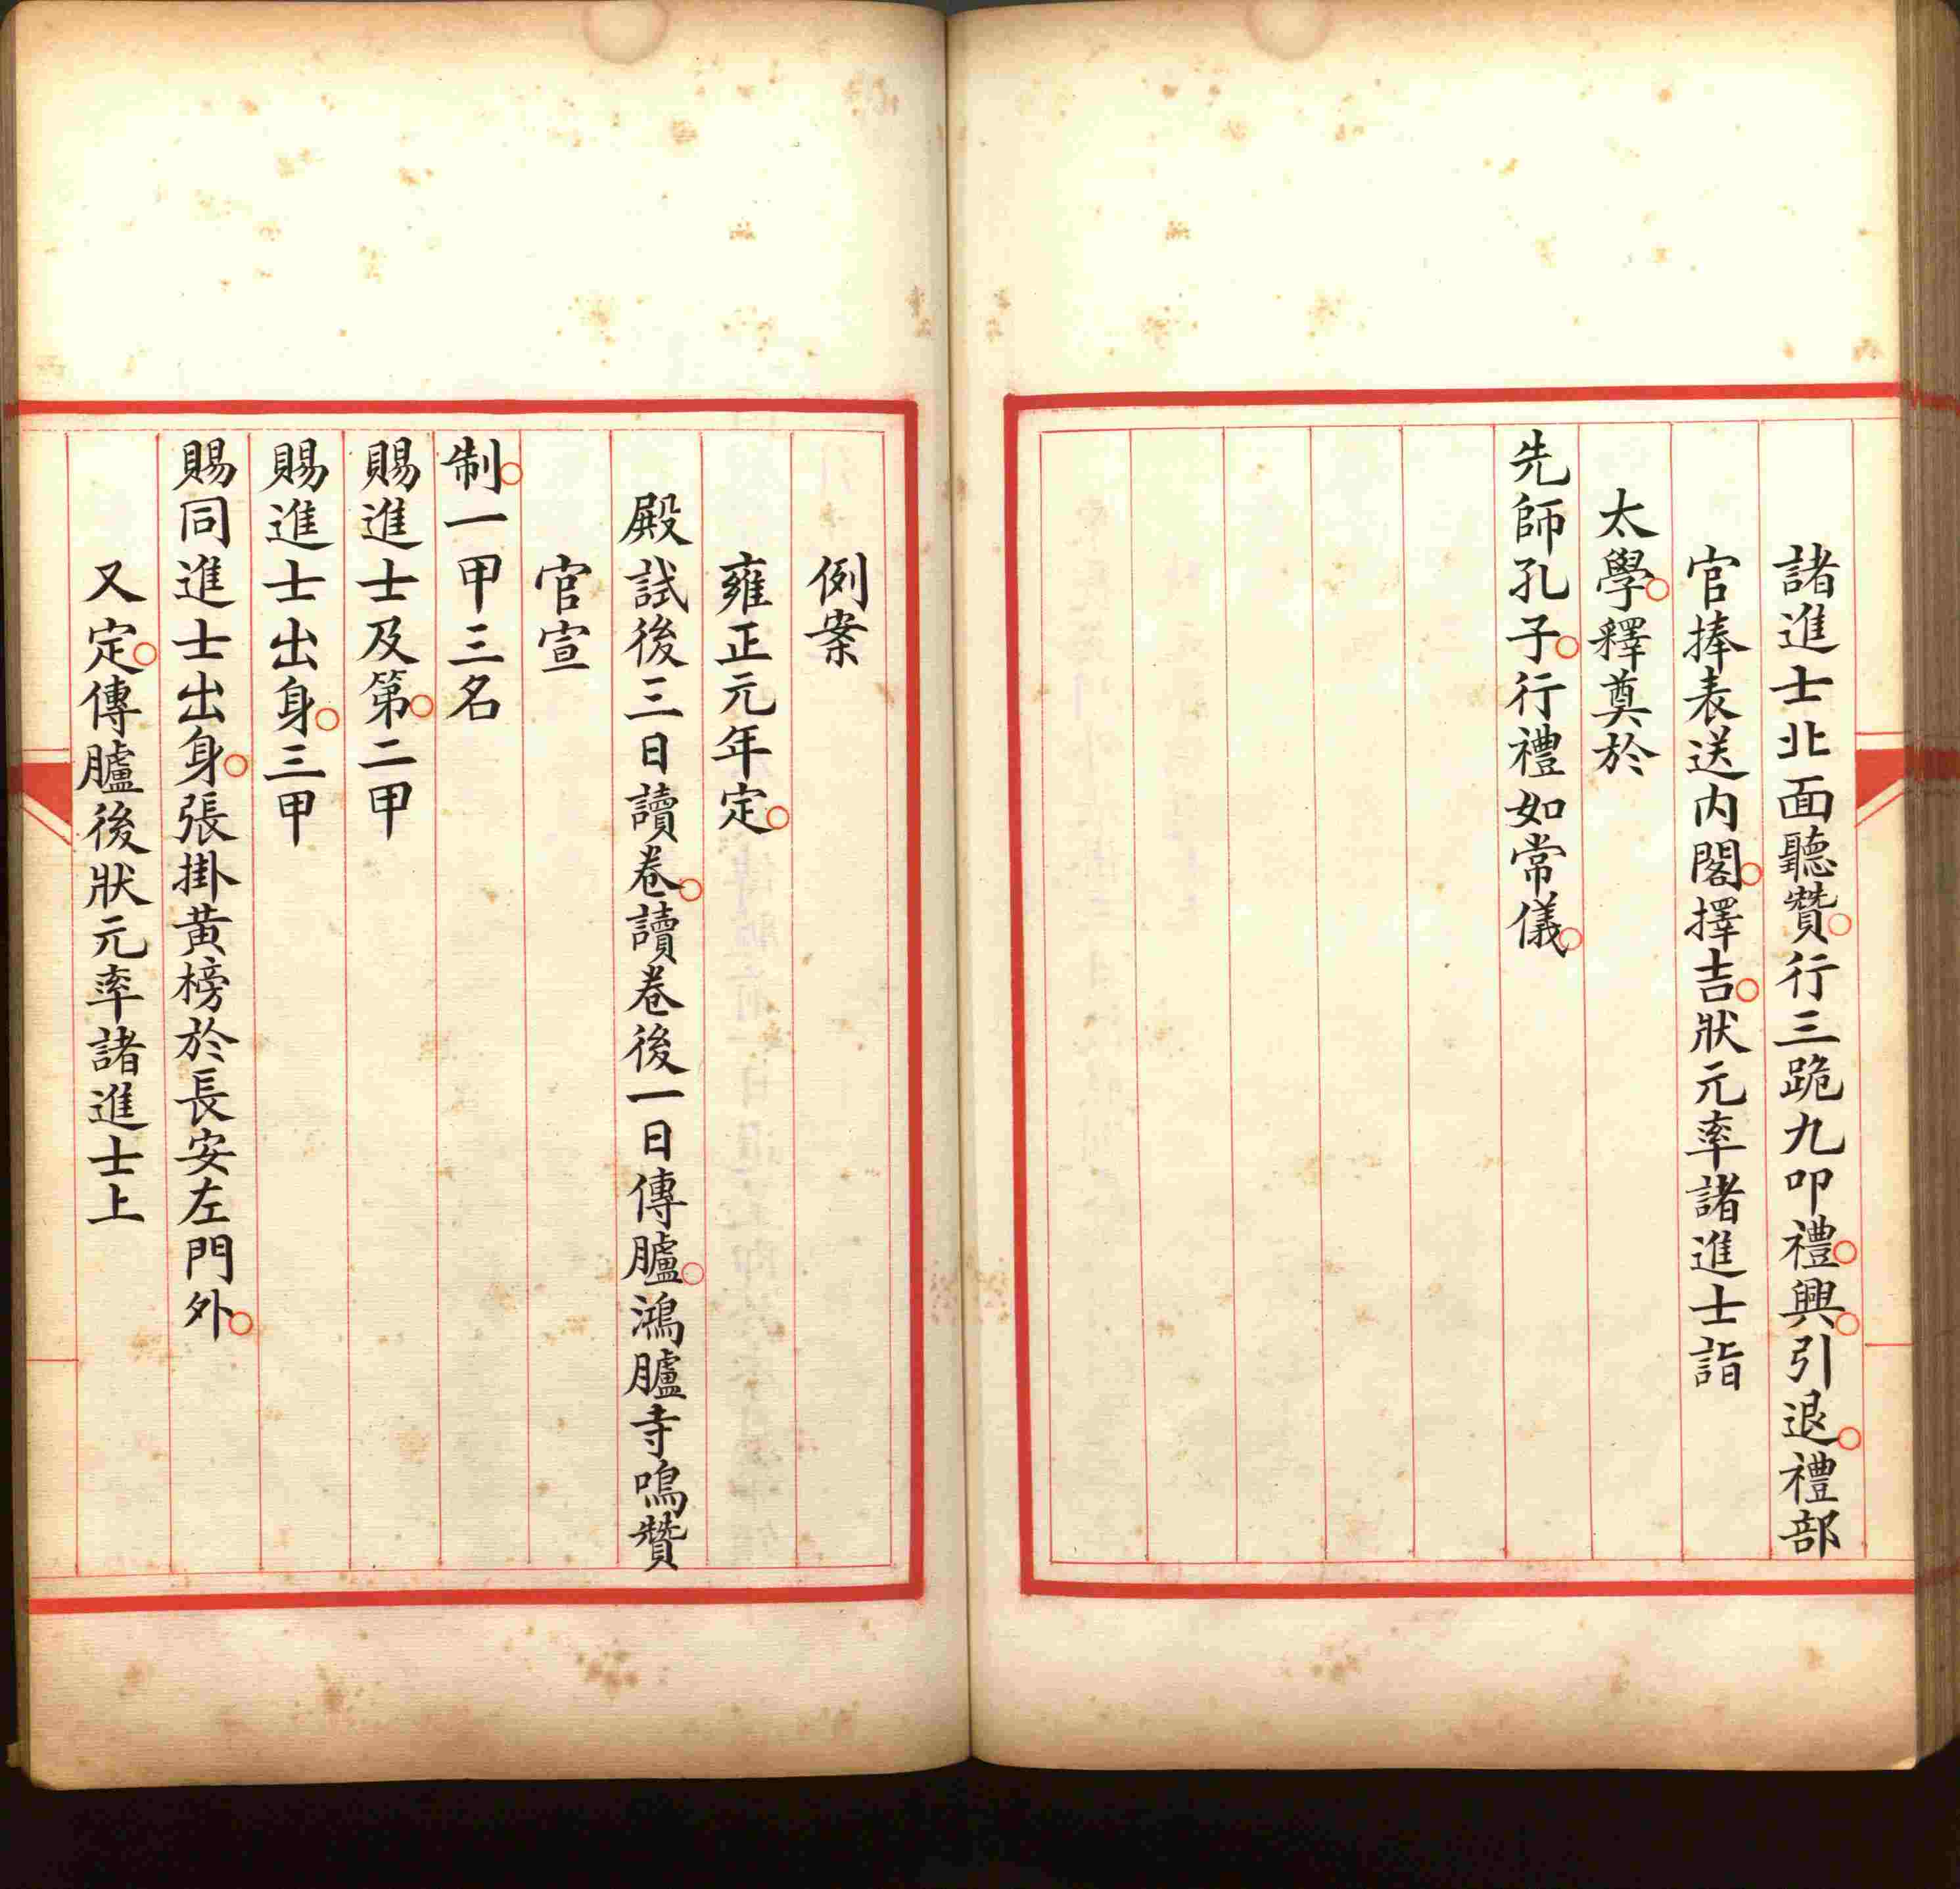 諸進士北面聽贊○行三跪九叩禮○興○引退○禮部
官捧表送内閣○擇吉○狀元率諸進士詣
太學○釋奠於
先師孔子○行禮如常儀○
例案
雍正元年定○
殿試後三日讀卷○讀卷後一日傳臚○鴻臚寺鳴贊
官宣
制○一甲三名
賜進士及第○二甲
賜進士出身○三甲
賜同進士出身○張掛黃榜於長安左門外○
又定○傳臚後狀元率諸進士上